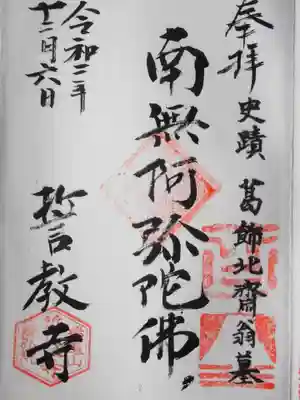 奉拝 史蹟 葛飾北齋翁墓
南無阿弥陀佛
誓教寺
令和二年
十二月六日